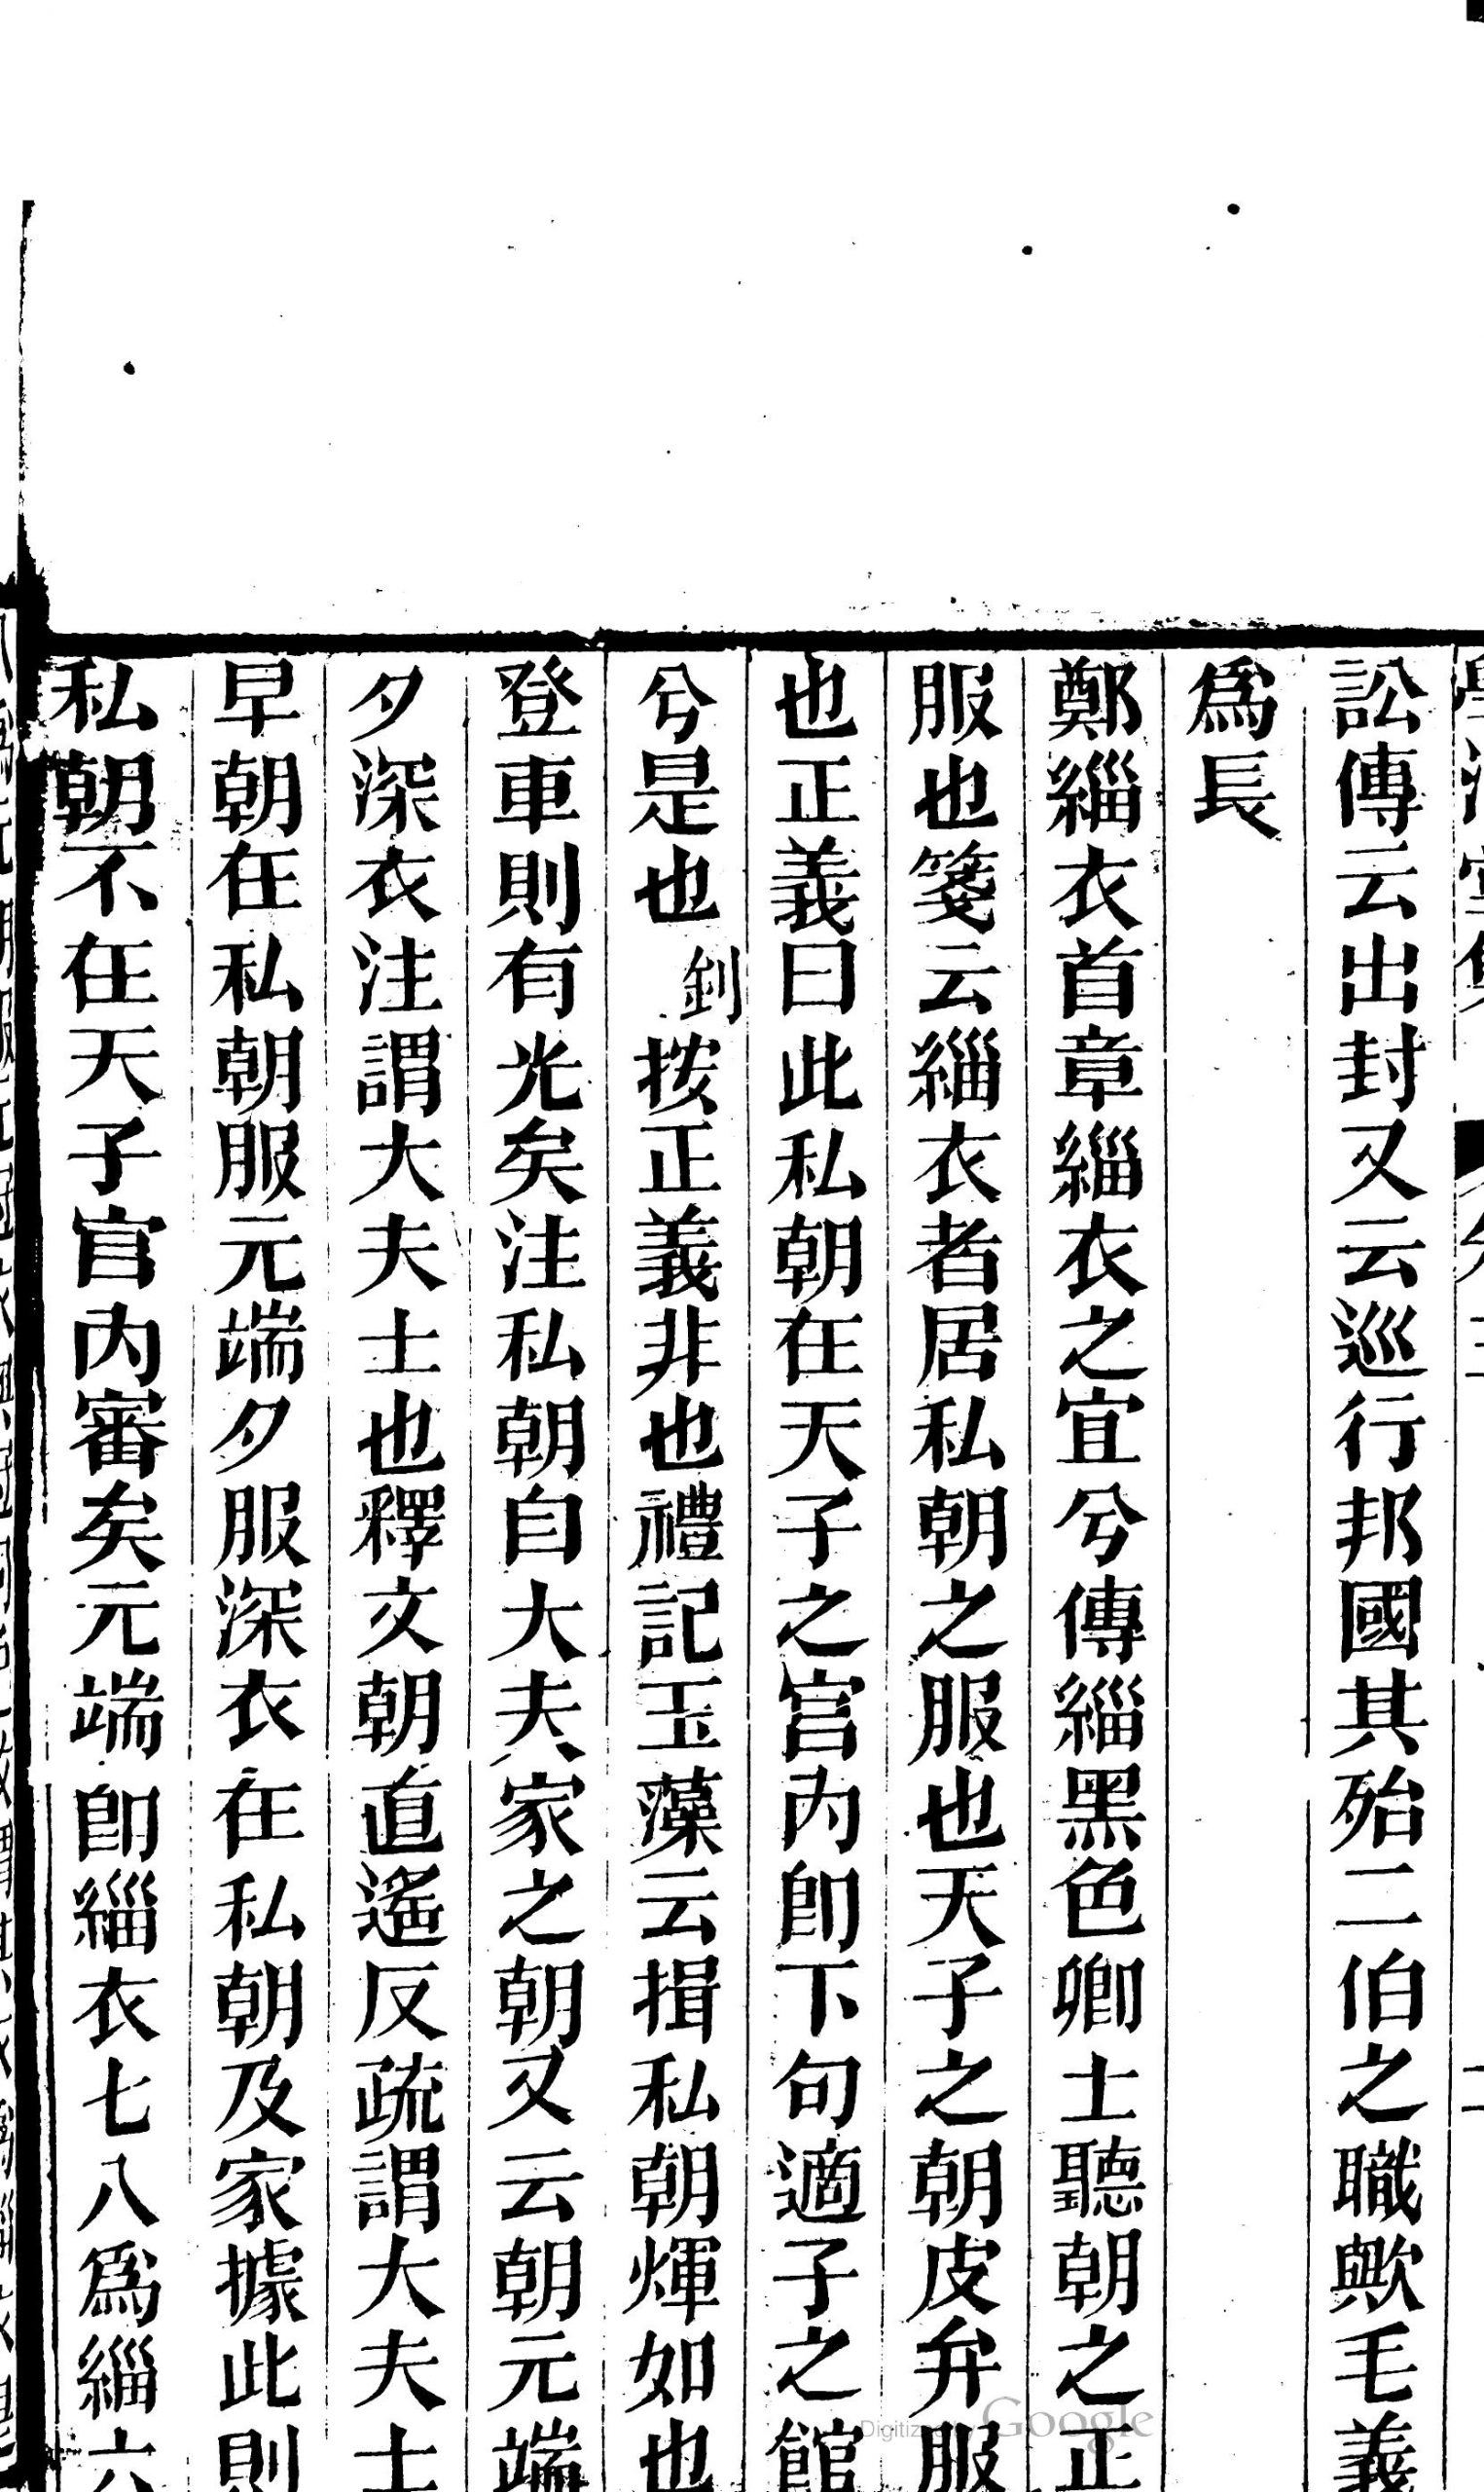 訟傳云出封又云巡行邦國其殆二伯之職歟毛義
爲長
鄭緇衣首章緇衣之宜兮傳緇黑色卿士聽朝之正
服也箋云緇衣者居私朝之服也天子之朝皮弁服
也正義曰此私朝在天子之宮內卽下句適子之館
兮是也釗按正義非也禮記玉藻云揖私朝煇如也
登車則有光矣注私朝自大夫家之朝又云朝元端
夕深衣注謂大夫士也釋文朝直遙反疏謂大夫士
早朝在私朝服元端夕服深衣在私朝及家據此則
私朝不在天子宫內審矣元端卽緇衣七八爲緇六
Digitized by Google